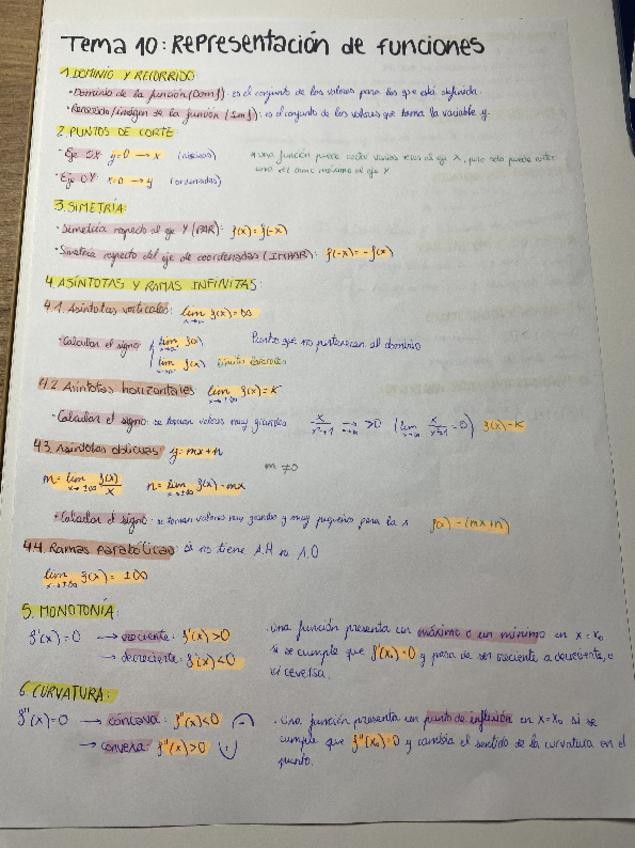 Tema 10: Representación de funciones
1. DOMINIO Y RECORRIDO
· Dominio de la función (Dom f): es el conjunto de los valores para los que está definida.
· Recorrido/imagen de la función (Im f): es el conjunto de los valores que toma la variable y.
2. PUNTOS DE CORTE
· Eje OX y=0 → x (abscisas)
* una función puede cortar varias veces al eje X, pero solo puede cortar
una vez como máximo al eje Y
· Eje OY x=0 → y (ordenadas)
3. SIMETRÍA:
· Simetría respecto al eje Y (PAR): f(x)=f(-x)
· Simetría respecto del eje de coordenadas (IMPAR): f(-x)=-f(x)
4. ASÍNTOTAS Y RAMAS INFINITAS:
4.1. Asíntotas verticales: lim f(x)=∞
· Calcular el signo lim f(x) Puntos que no pertenecen al dominio
lim f(x) límites laterales
4.2 Asíntotas horizontales lim x→±∞ f(x)=K
· Calcular el signo: se toman valores muy grandes >0 =0) f(x)-K
4.3. Asíntotas oblicuas: y=mx+n
m≠0
m=lim x→±∞ f(x)/x n=lim x→±∞ f(x)-mx
· Calcular el signo: se toman valores muy grandes y muy pequeños para la x f(x)-(mx+n)
4.4. Ramas parabólicas: si no tiene A.H ni A.O
lim x→±∞ f(x)=±∞
5. MONOTONÍA:
f'(x)=0 → creciente: f'(x)>0
→ decreciente: f'(x)<0
· Una función presenta un máximo o un mínimo en x=x₀
si se cumple que f'(x₀)=0 y pasa de ser creciente a decreciente, o
viceversa.
6. CURVATURA:
f''(x)=0 → cóncava: f''(x)<0
→ convexa: f''(x)>0
· Una función presenta un punto de inflexión en x=x₀ si se
cumple que f''(x₀)=0 y cambia el sentido de la curvatura en el
punto.